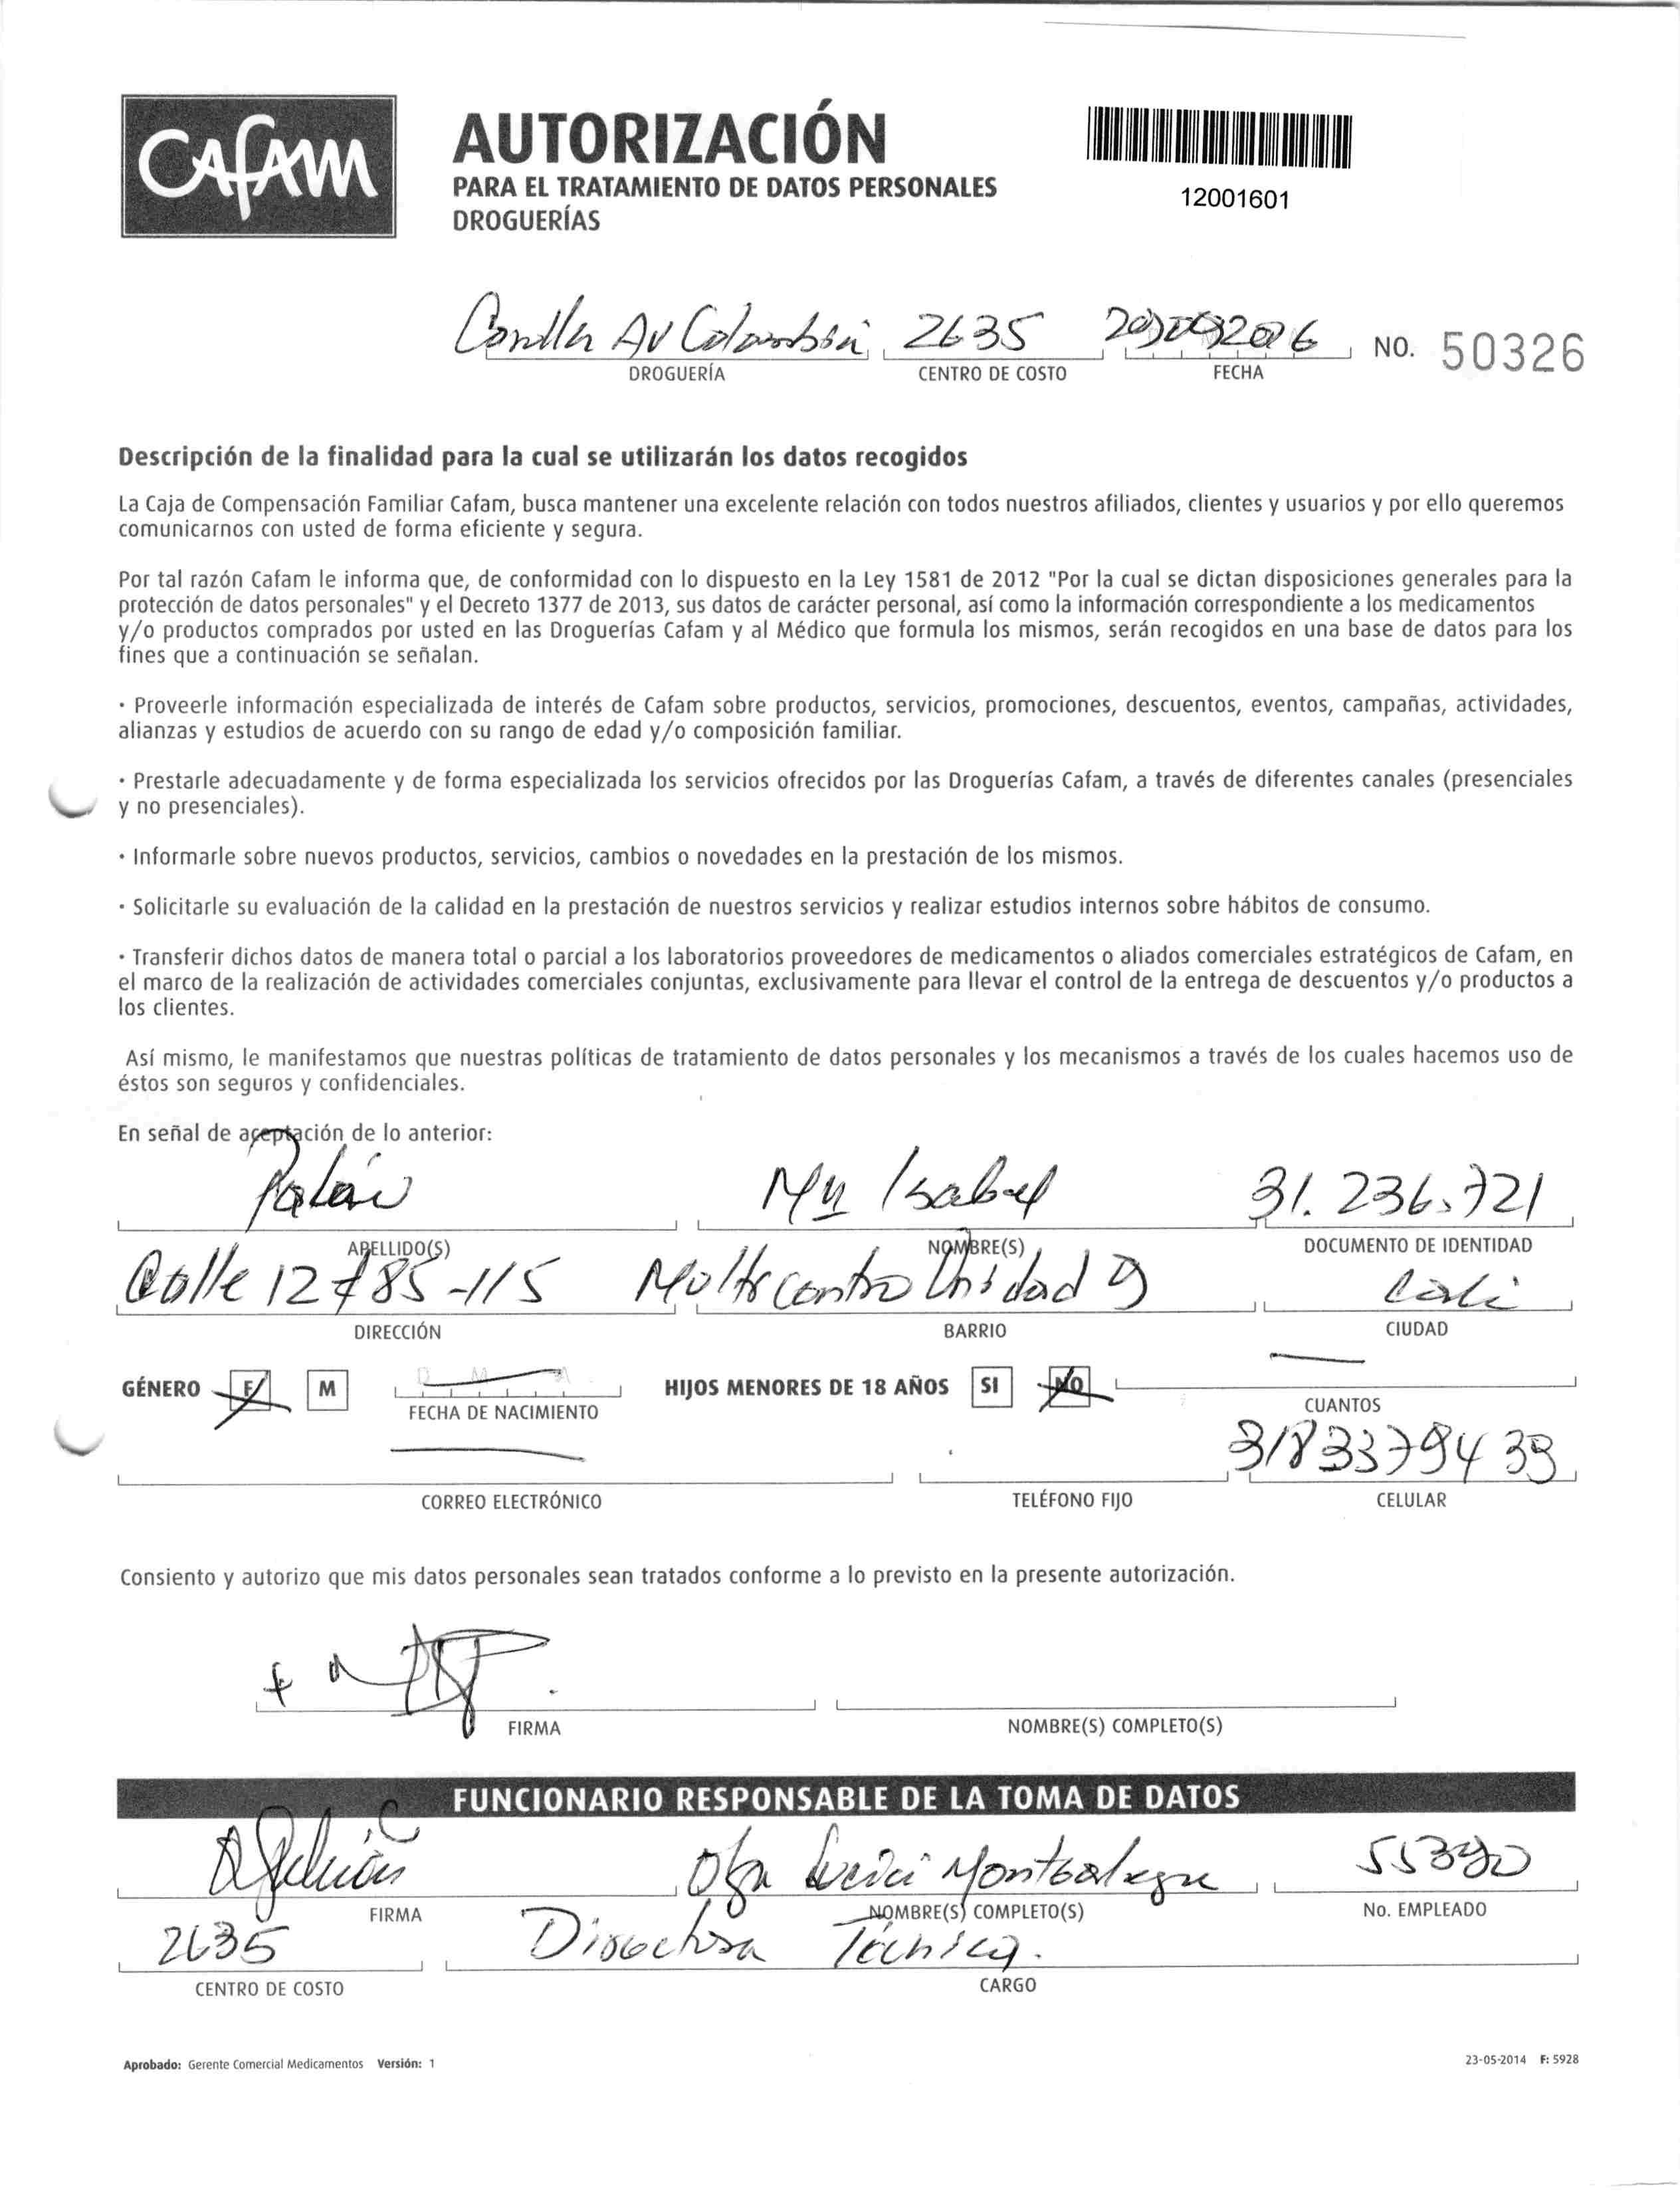 CAFAM
AUTORIZACIÓN
PARA EL TRATAMIENTO DE DATOS PERSONALES
DROGUERÍAS
12001601
Av Colombia 2635
DROGUERÍA CENTRO DE COSTO FECHA
NO. 50326
Descripción de la finalidad para la cual se utilizarán los datos recogidos
La Caja de Compensación Familiar Cafam, busca mantener una excelente relación con todos nuestros afiliados, clientes y usuarios y por ello queremos
comunicarnos con usted de forma eficiente y segura.
Por tal razón Cafam le informa que, de conformidad con lo dispuesto en la Ley 1581 de 2012 "Por la cual se dictan disposiciones generales para la
protección de datos personales" y el Decreto 1377 de 2013, sus datos de carácter personal, así como la información correspondiente a los medicamentos
y/o productos comprados por usted en las Droguerías Cafam y al Médico que formula los mismos, serán recogidos en una base de datos para los
fines que a continuación se señalan.
· Proveerle información especializada de interés de Cafam sobre productos, servicios, promociones, descuentos, eventos, campañas, actividades,
alianzas y estudios de acuerdo con su rango de edad y/o composición familiar.
· Prestarle adecuadamente y de forma especializada los servicios ofrecidos por las Droguerías Cafam, a través de diferentes canales (presenciales
y no presenciales).
· Informarle sobre nuevos productos, servicios, cambios o novedades en la prestación de los mismos.
· Solicitarle su evaluación de la calidad en la prestación de nuestros servicios y realizar estudios internos sobre hábitos de consumo.
· Transferir dichos datos de manera total o parcial a los laboratorios proveedores de medicamentos o aliados comerciales estratégicos de Cafam, en
el marco de la realización de actividades comerciales conjuntas, exclusivamente para llevar el control de la entrega de descuentos y/o productos a
los clientes.
Así mismo, le manifestamos que nuestras políticas de tratamiento de datos personales y los mecanismos a través de los cuales hacemos uso de
éstos son seguros y confidenciales.
En señal de aceptación de lo anterior:
Isabel 31.236.721
APELLIDO(S) NOMBRE(S) DOCUMENTO DE IDENTIDAD
Calle 12 # 85-115 Multicentro Unidad 9 Cali
DIRECCIÓN BARRIO CIUDAD
GÉNERO F M HIJOS MENORES DE 18 AÑOS SI NO
FECHA DE NACIMIENTO CUANTOS
3183379439
CORREO ELECTRÓNICO TELÉFONO FIJO CELULAR
Consiento y autorizo que mis datos personales sean tratados conforme a lo previsto en la presente autorización.
FIRMA NOMBRE(S) COMPLETO(S)
FUNCIONARIO RESPONSABLE DE LA TOMA DE DATOS
Olga Lucia Montealegre 55390
FIRMA NOMBRE(S) COMPLETO(S) No. EMPLEADO
2635 Directora Técnica.
CENTRO DE COSTO CARGO
Aprobado: Gerente Comercial Medicamentos Versión: 1
23-05-2014 F: 5928